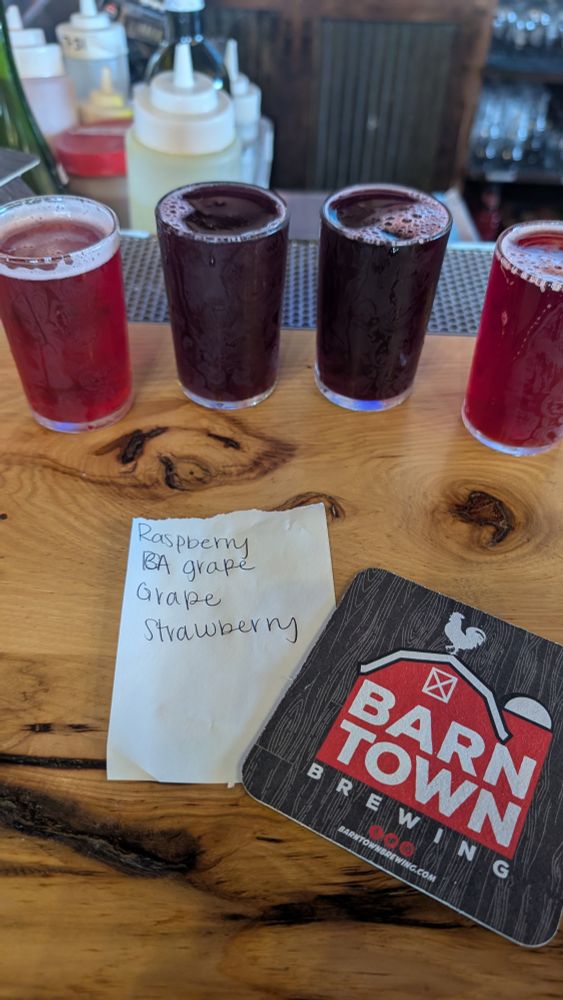 Raspberry
BA grape
Grape
Strawberry
BARN
TOWN
BREWING
BARNTOWNBREWING.COM